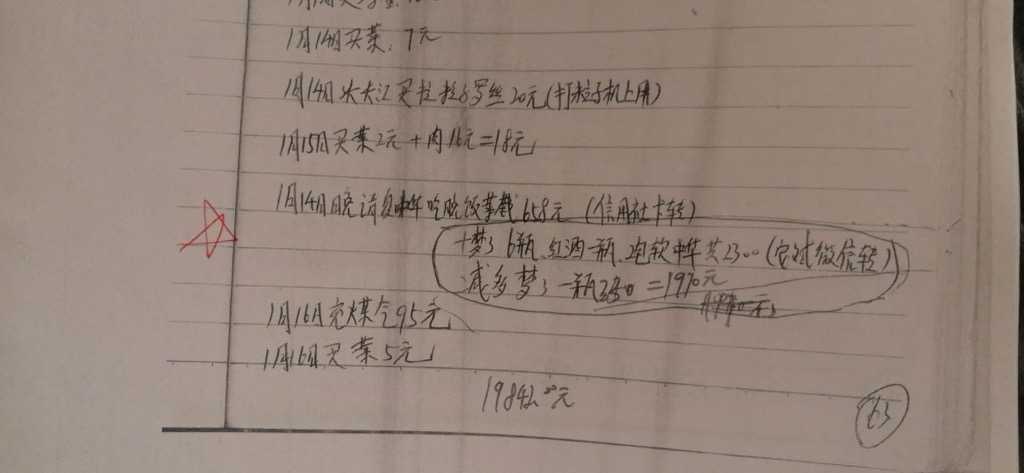 1月14日买菜.7元
1月14日 大江买拉 20元(打粒子机上用)
1月15日买菜2元+肉16元=18元
1月14日晚请 吃晚饭 658元 (信用社卡转)
+梦3 6瓶.红酒一瓶. 软中华共2300 (微信转)
减多梦3一瓶330=1970元
1月16日充煤气95元
1月16日买菜5元
19842.00元
63